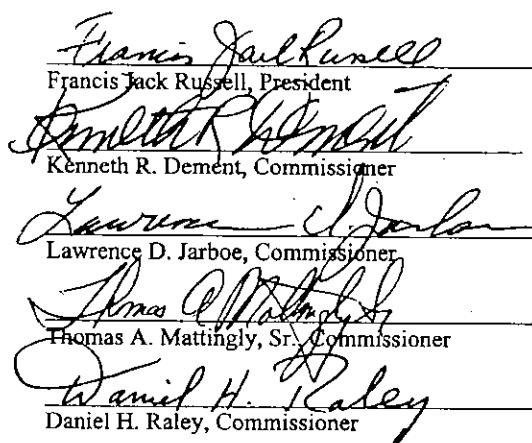 Francis Jack Russell
Francis Jack Russell, President
Kenneth R Dement
Kenneth R. Dement, Commissioner
Lawrence D. Jarboe
Lawrence D. Jarboe, Commissioner
Thomas A Mattingly Sr
Thomas A. Mattingly, Sr., Commissioner
Daniel H. Raley
Daniel H. Raley, Commissioner